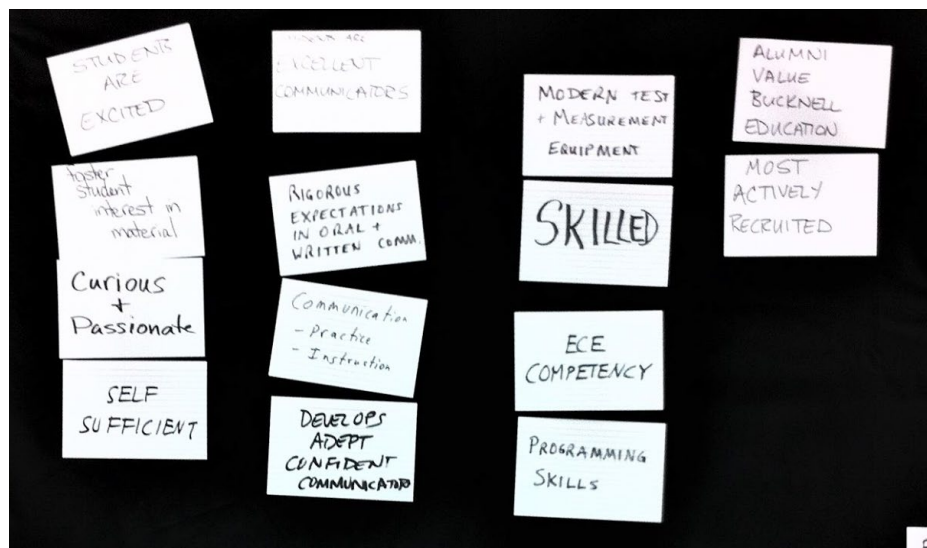 STUDENTS
ARE
EXCITED
foster
student
interest in
material
Curious
+
Passionate
SELF
SUFFICIENT
ARE
EXCELLENT
COMMUNICATORS
RIGOROUS
EXPECTATIONS
IN ORAL +
WRITTEN COMM.
Communication
- Practice
- Instruction
DEVELOPS
ADEPT
CONFIDENT
COMMUNICATORS
MODERN TEST
+ MEASUREMENT
EQUIPMENT
SKILLED
ECE
COMPETENCY
PROGRAMMING
SKILLS
ALUMNI
VALUE
BUCKNELL
EDUCATION
MOST
ACTIVELY
RECRUITED